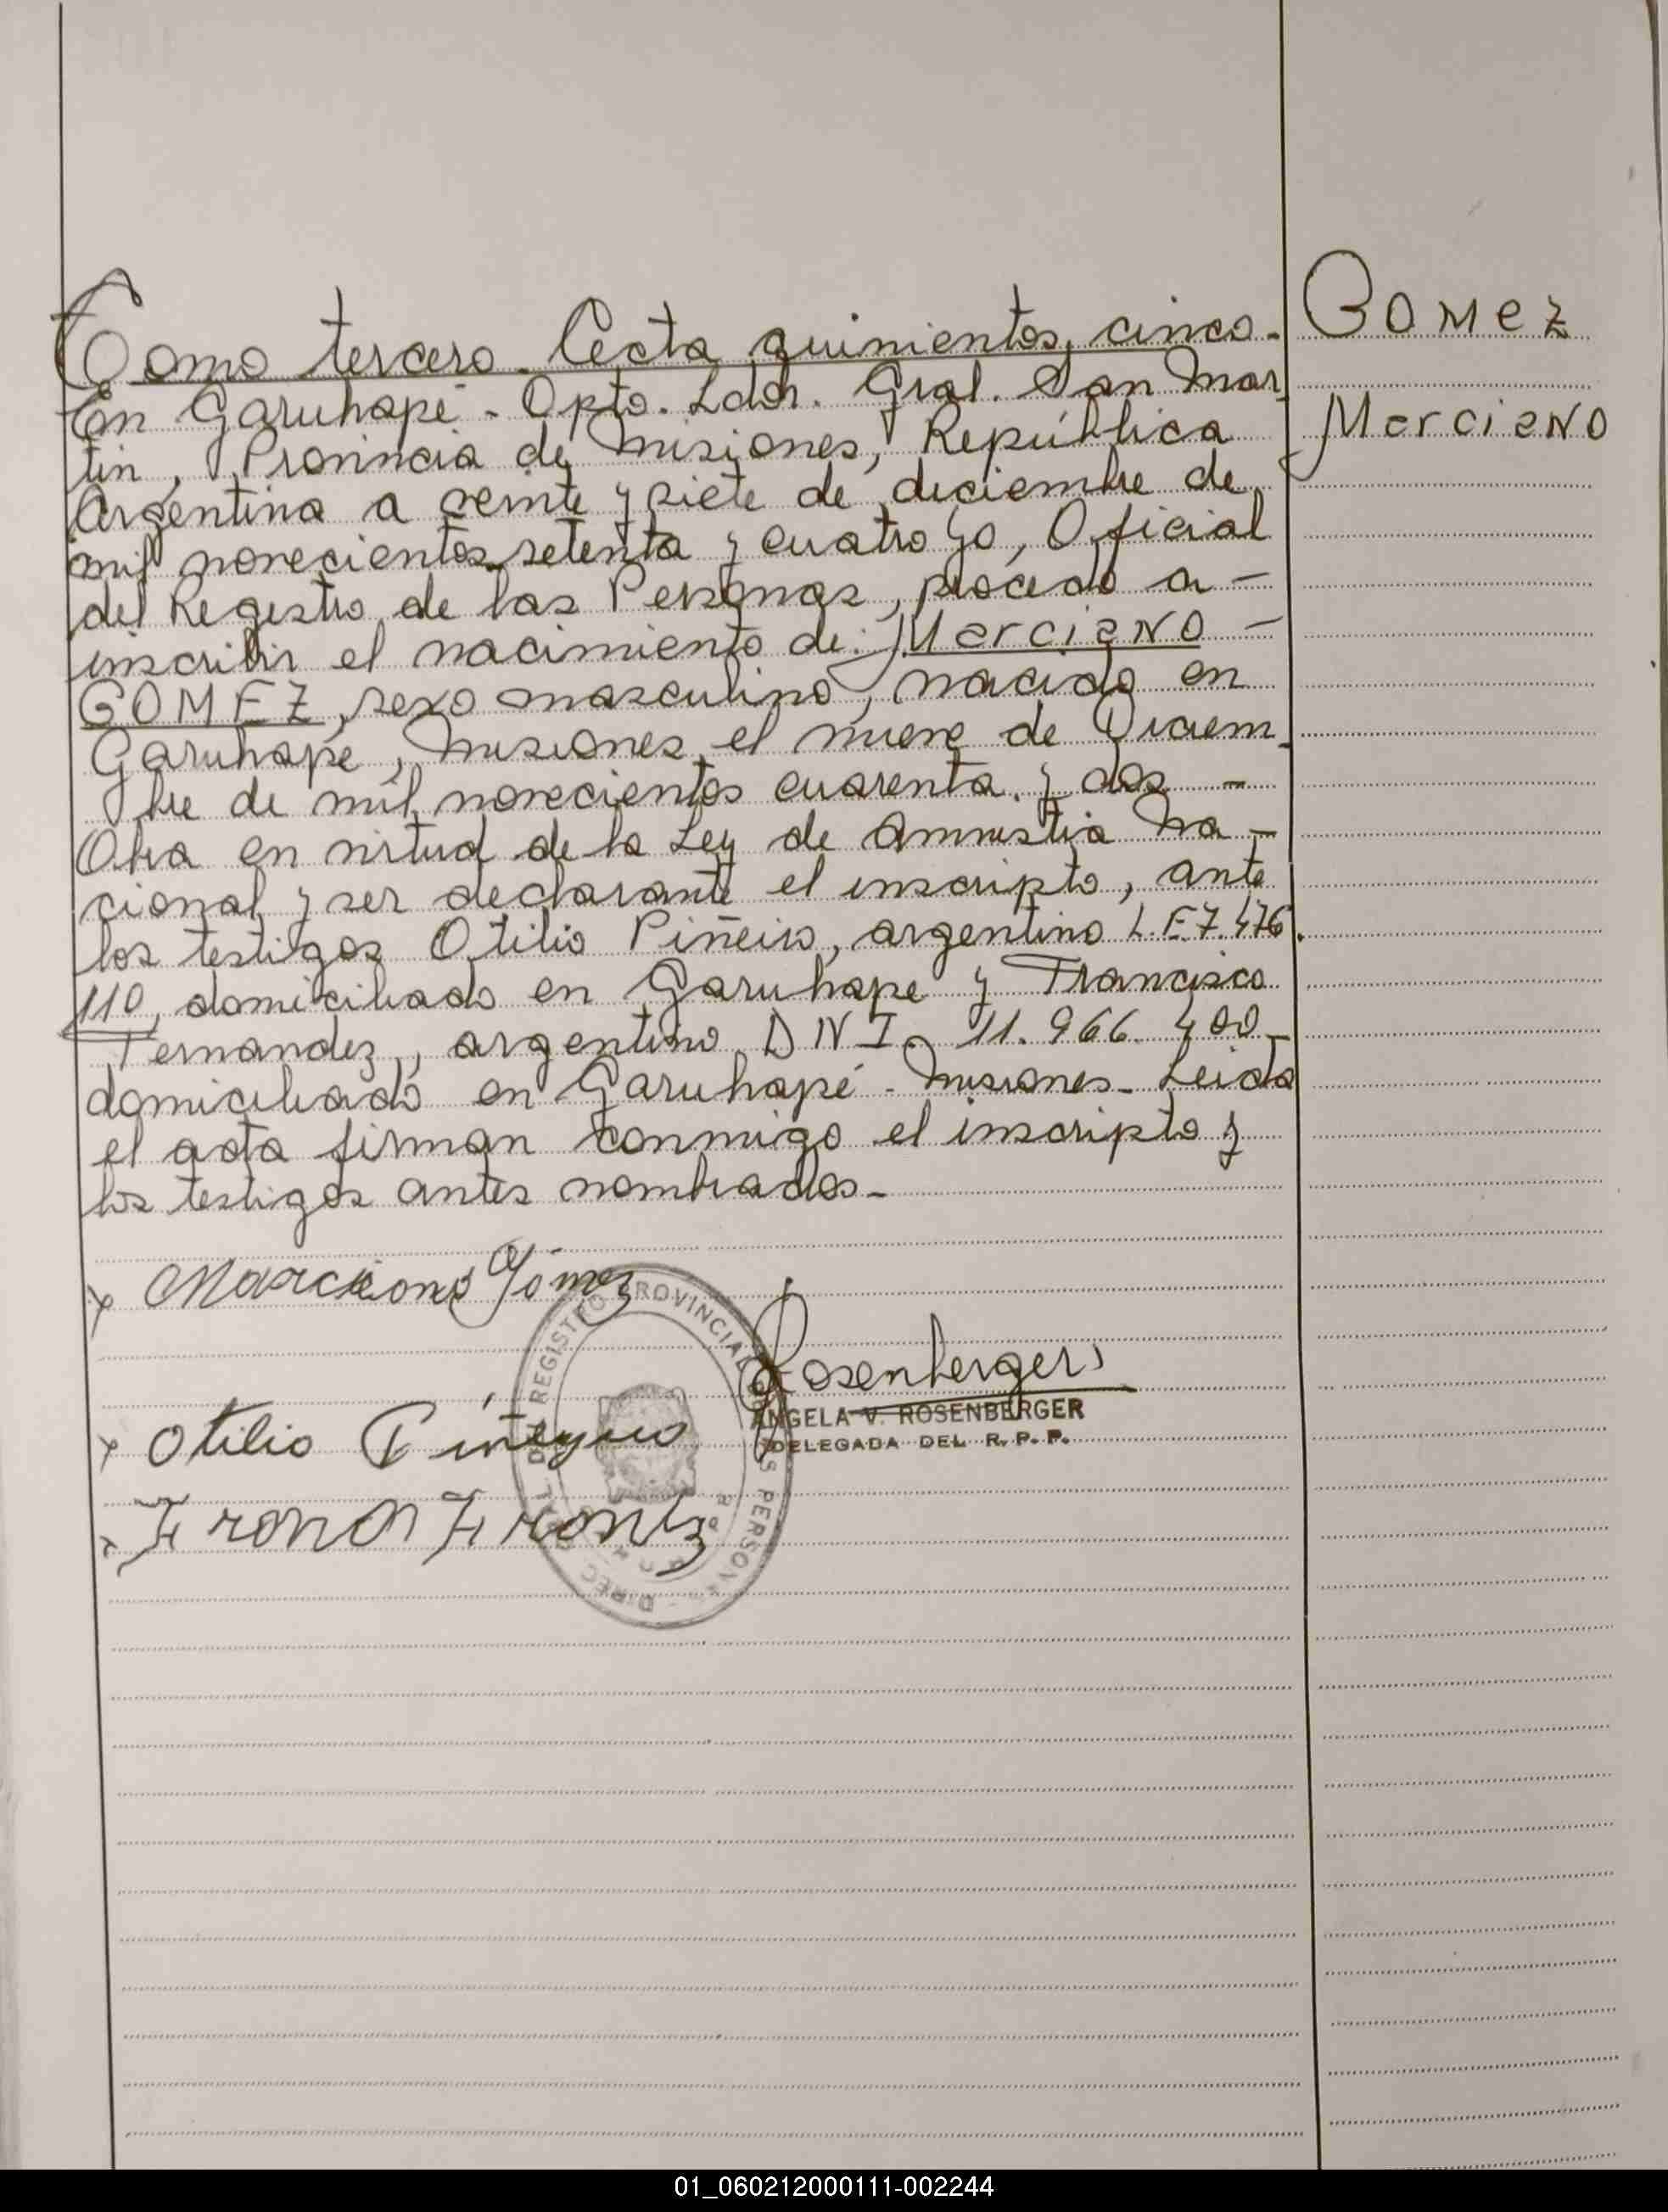 Tomo tercero. Acta quinientos cinco.
GOMEZ
En Garuhapé - Dpto. Ldor. Gral. San Mar
Marciano
tín, Provincia de Misiones, República
Argentina a veinte y siete de diciembre de
mil novecientos setenta y cuatro yo, Oficial
del Registro de las Personas, procedo a -
inscribir el nacimiento de: Marciano -
GOMEZ, sexo masculino, nacido en
Garuhapé, Misiones, el nueve de Diciem-
bre de mil novecientos cuarenta y dos -
Obra en virtud de la Ley de Amnistia Na-
cional y ser declarante el inscripto, ante
los testigos Otilio Piñeiro, argentino L.E 7.476.
110, domiciliado en Garuhape y Francisco
Fernandez, argentino DNI. 11.966.400-
domiciliado en Garuhapé - Misiones - Leída
el acta firman conmigo el inscripto y
los testigos antes nombrados -
x Marciano Gómez
Rosenberger
ANGELA V. ROSENBERGER
DELEGADA DEL R. P. P.
x Otilio Piñeyro
REGISTRO PROVINCIAL PERSONAS
01_060212000111-002244